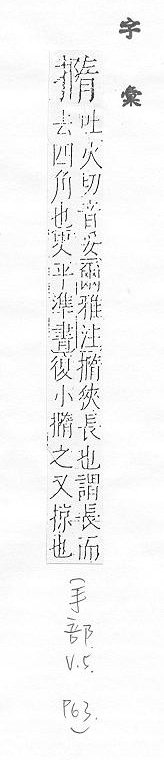 字彙
撱
吐火切音妥爾雅注撱狹長也謂長而
去四角也史平準書復小撱之又掠也
(手部 V.5. P63.)